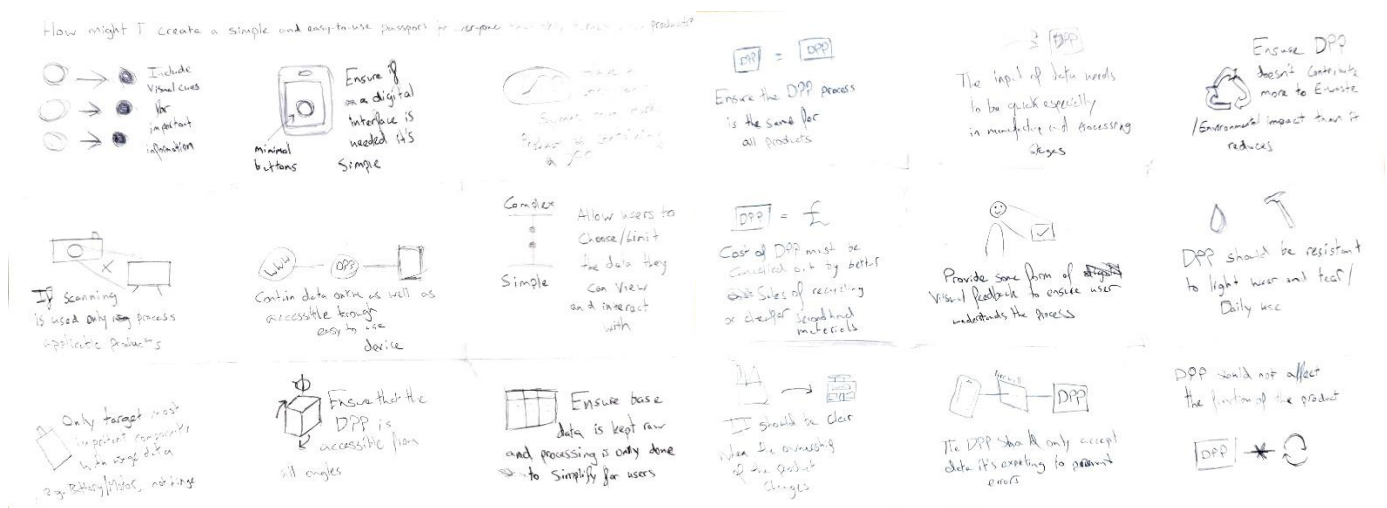 How might I create a simple and easy-to-use passport for everyone products?
Include
Visual cues
for
important
information
Ensure if
a digital
interface is
needed it's
Simple
minimal
buttons
DPP = DPP
Ensure the DPP process
is the same for
all products
DPP
The input of data needs
to be quick especially
in and processing
stages
Ensure DPP
doesn't contribute
more to E-waste
/Environmental impact than it
reduces
If scanning
is used only process
products
WWW
DPP
Contain data online as well as
accessible through
easy to use
device
Complex
Simple
Allow users to
Choose/Limit
the data they
can view
and interact
with
DPP = £
Cost of DPP must be
cancelled out by better
Sales of recycling
or cheaper secondhand
materials
Provide some form of
Visual feedback to ensure user
understands the process
DPP should be resistant
to light wear and tear/
Daily use
Only target most
important components
with usage data
e.g. Battery/Motor, not hinge
Ensure that the
DPP is
accessible from
all angles
Ensure base
data is kept raw
and processing is only done
to Simplify for users
It should be clear
when the ownership
of the product
changes
DPP
The DPP should only accept
data it's expecting to prevent
errors
DPP should not affect
the function of the product
DPP